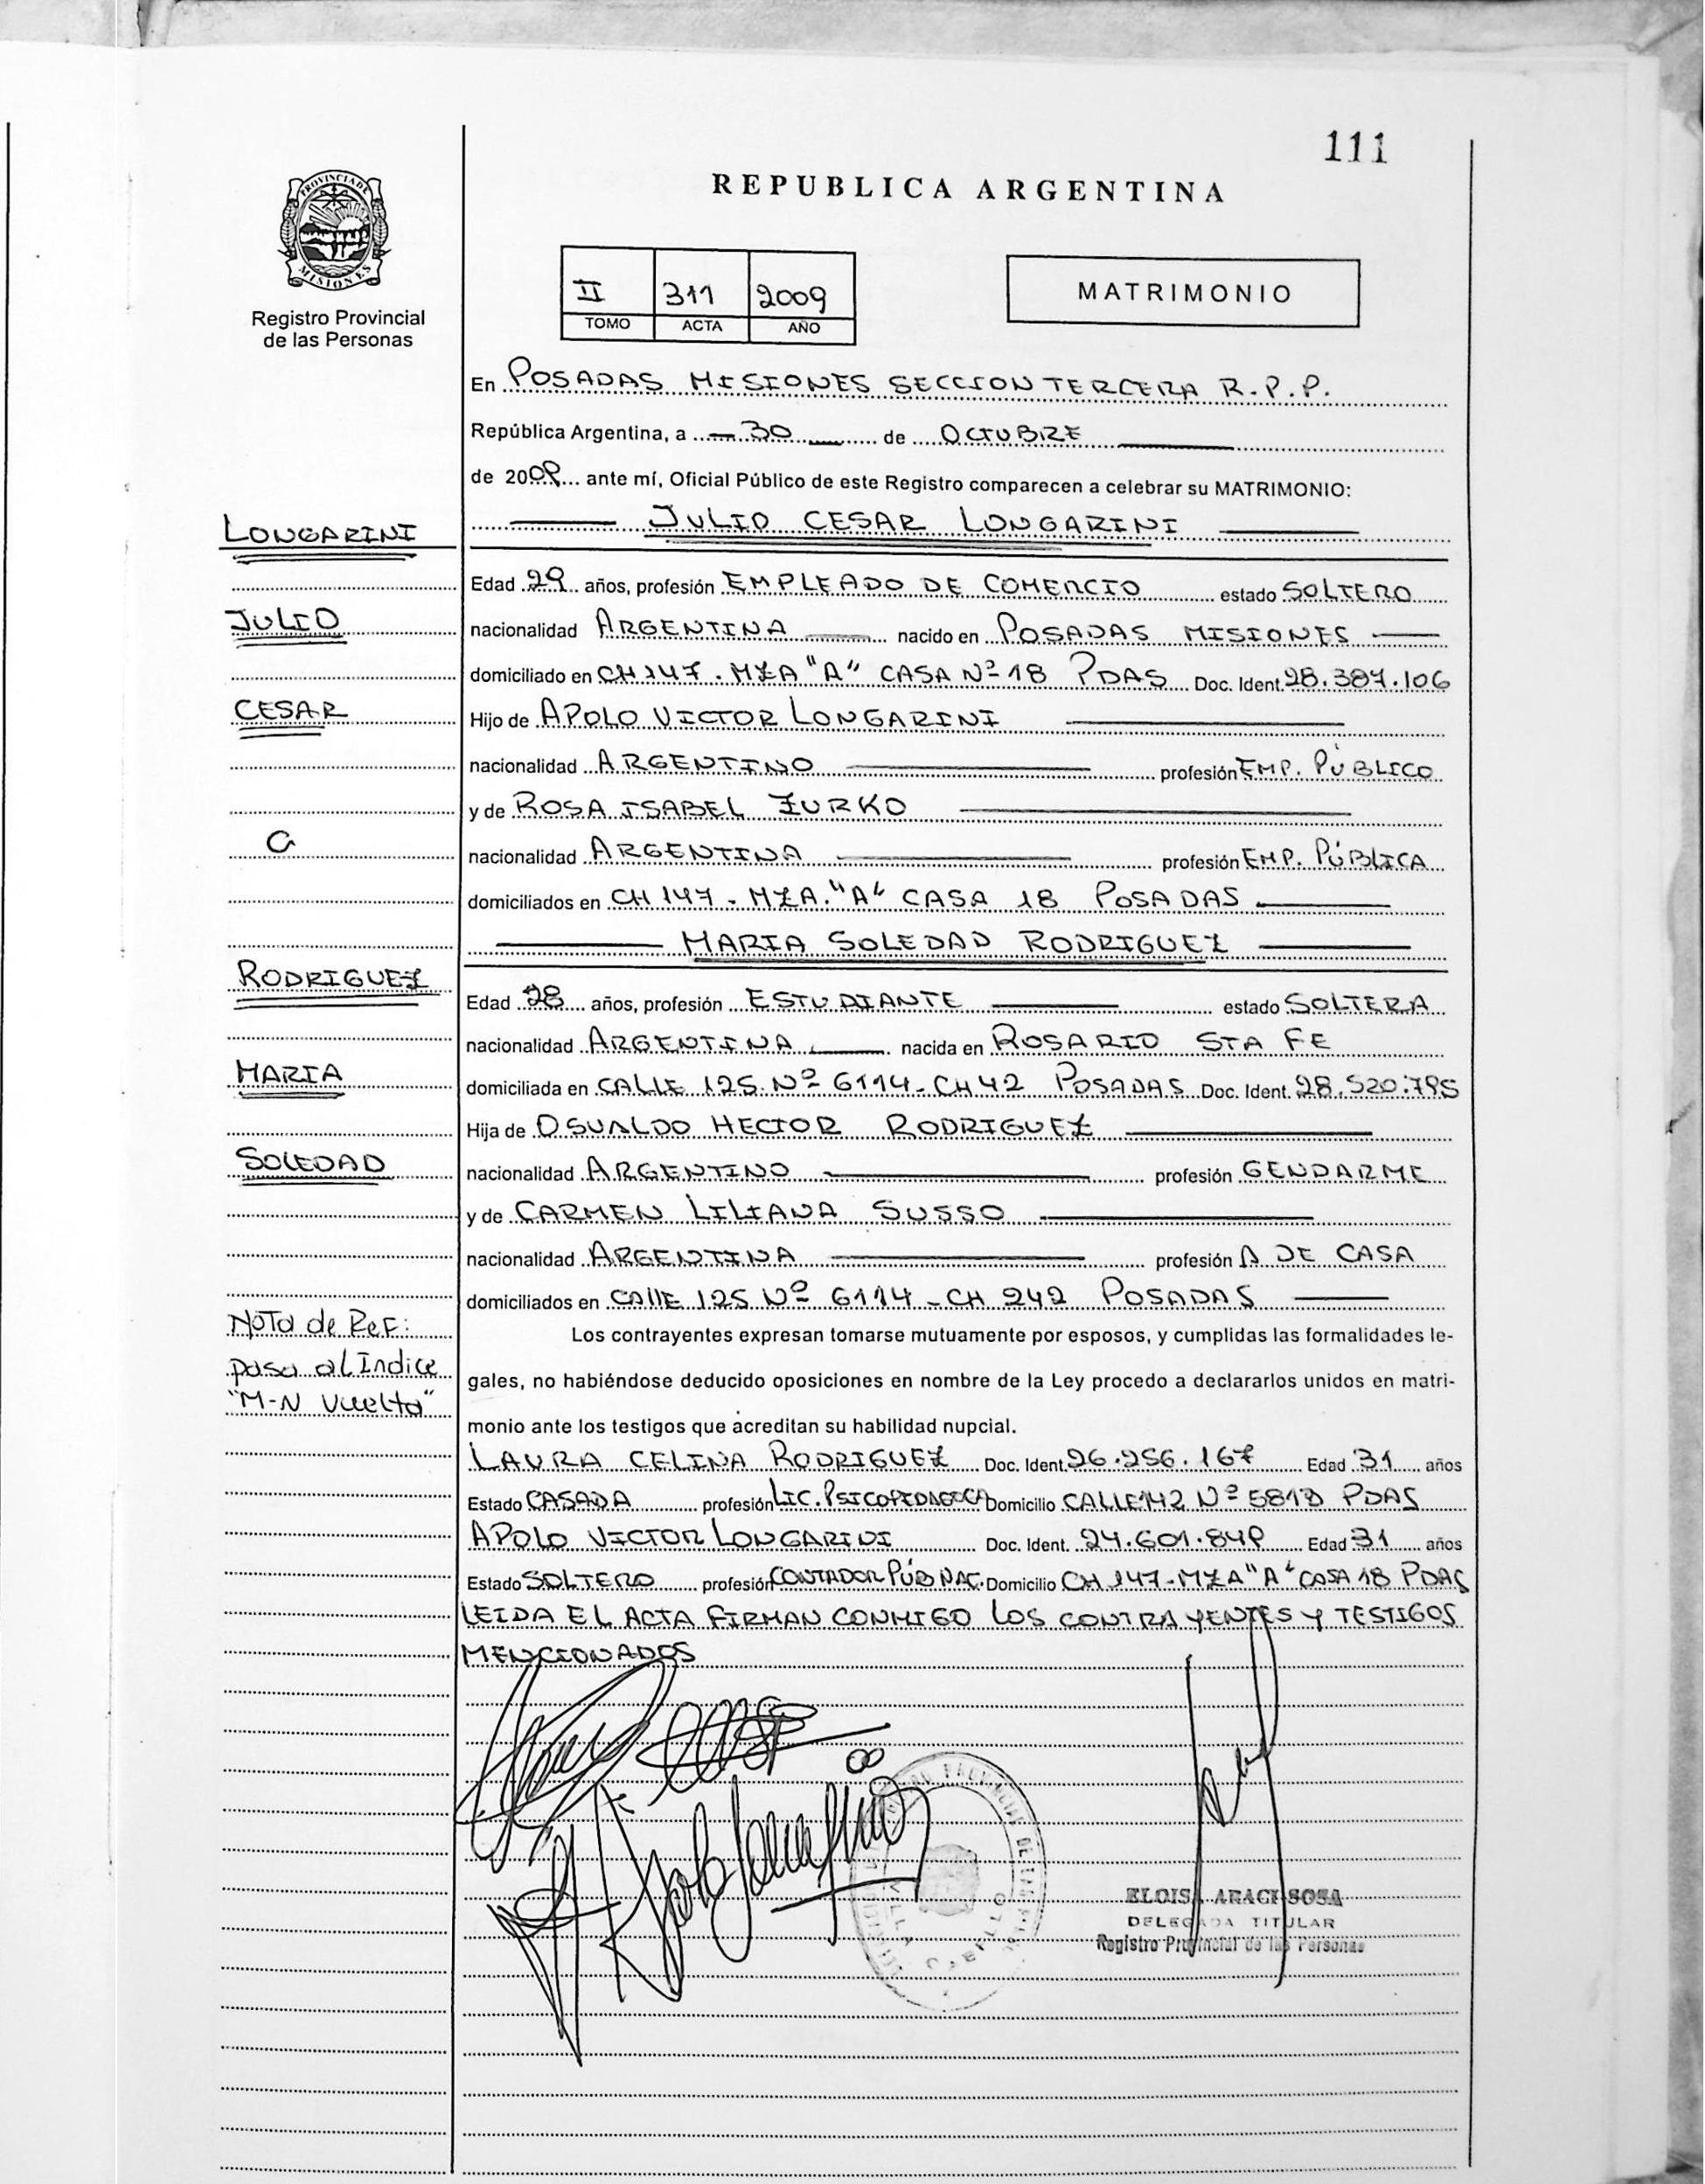 111
REPUBLICA ARGENTINA
PROVINCIA DE
MISIONES
Registro Provincial
de las Personas
II 311 2009
TOMO ACTA AÑO
MATRIMONIO
En POSADAS MISIONES SECCION TERCERA R.P.P.
República Argentina, a 30 de OCTUBRE
de 2009 ante mí, Oficial Público de este Registro comparecen a celebrar su MATRIMONIO:
LONGARINI
JULIO CESAR LONGARINI
Edad 29 años, profesión EMPLEADO DE COMERCIO estado SOLTERO
JULIO
nacionalidad ARGENTINA nacido en POSADAS MISIONES
domiciliado en CH 147. MZA "A" CASA Nº 18 PDAS Doc. Ident. 28.387.106
CESAR
Hijo de APOLO VICTOR LONGARINI
nacionalidad ARGENTINO profesión EMP. PÚBLICO
y de ROSA ISABEL ZURKO
C
nacionalidad ARGENTINA profesión EMP. PÚBLICA
domiciliados en CH 147 - MZA. "A" CASA 18 POSADAS
MARIA SOLEDAD RODRIGUEZ
RODRIGUEZ
Edad 28 años, profesión ESTUDIANTE estado SOLTERA
nacionalidad ARGENTINA nacida en ROSARIO STA FE
MARIA
domiciliada en CALLE 125 Nº 6114 - CH 42 POSADAS Doc. Ident. 28.520.795
Hija de OSVALDO HECTOR RODRIGUEZ
SOLEDAD
nacionalidad ARGENTINO profesión GENDARME
y de CARMEN LILIANA SUSSO
nacionalidad ARGENTINA profesión A DE CASA
domiciliados en CALLE 125 Nº 6114 - CH 242 POSADAS
Nota de Ref:
pasa al Indice
"M-N Vuelta"
Los contrayentes expresan tomarse mutuamente por esposos, y cumplidas las formalidades le-
gales, no habiéndose deducido oposiciones en nombre de la Ley procedo a declararlos unidos en matri-
monio ante los testigos que acreditan su habilidad nupcial.
LAURA CELINA RODRIGUEZ Doc. Ident. 26.256.167 Edad 31 años
Estado CASADA profesión LIC. PSICOPEDAGOGA Domicilio CALLE 142 Nº PDAS
APOLO VICTOR LONGARINI Doc. Ident. 24.601.849 Edad 31 años
Estado SOLTERO profesión CONTADOR PÚB NAC. Domicilio CH 147 - MZA "A" CASA 18 PDAS
LEIDA EL ACTA FIRMAN CONMIGO LOS CONTRAYENTES Y TESTIGOS
MENCIONADOS
VILLA CABELLO
ELOISA ARACI SOSA
DELEGADA TITULAR
Registro Provincial de las Personas